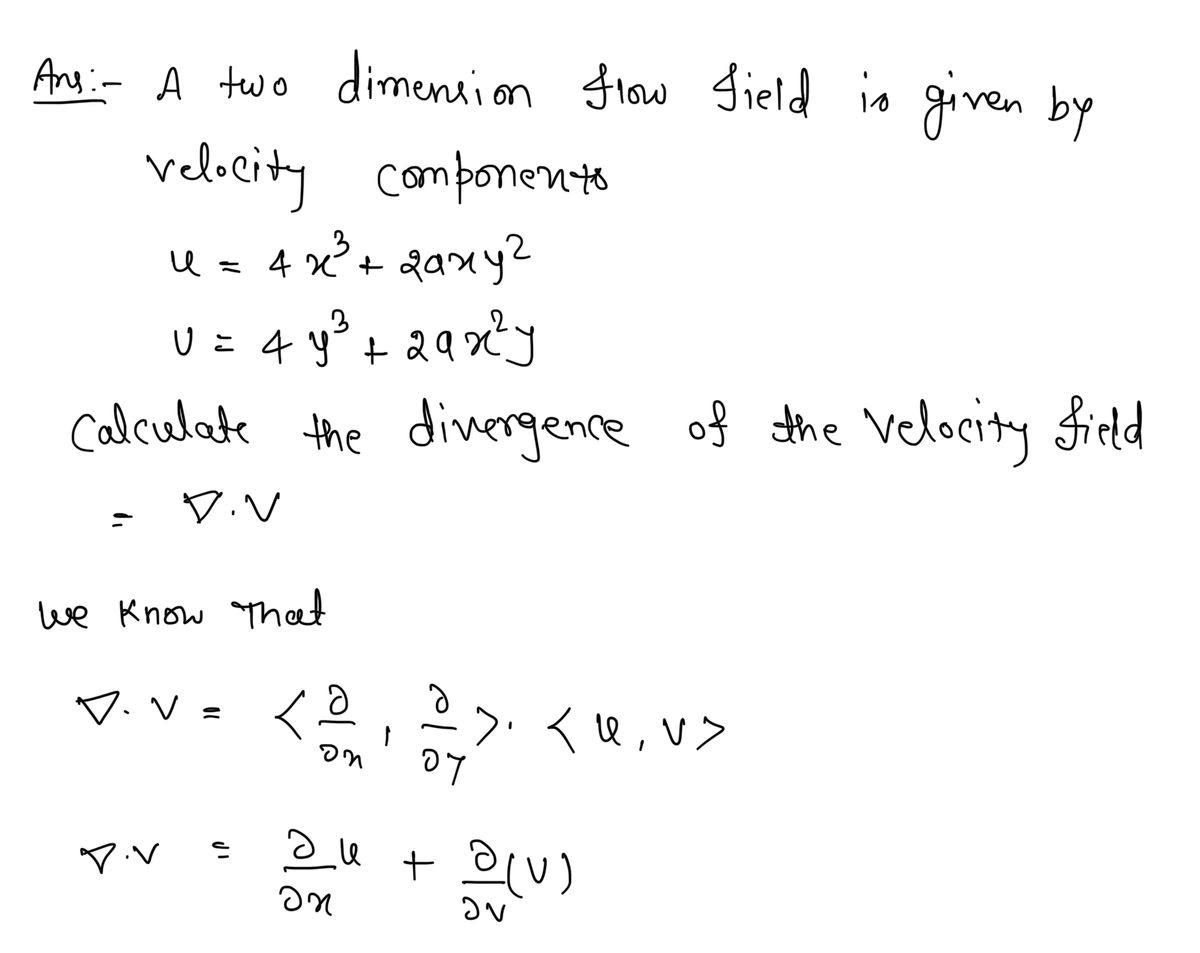 Ans:- A two dimension flow field is given by
velocity components
u = 4x³ + 2axy²
v = 4y³ + 2ax²y
Calculate the divergence of the velocity field
= ∇.V
we know that
∇.V = <∂/∂x, ∂/∂y>.<u, v>
∇.V = ∂u/∂x + ∂/∂v(v)